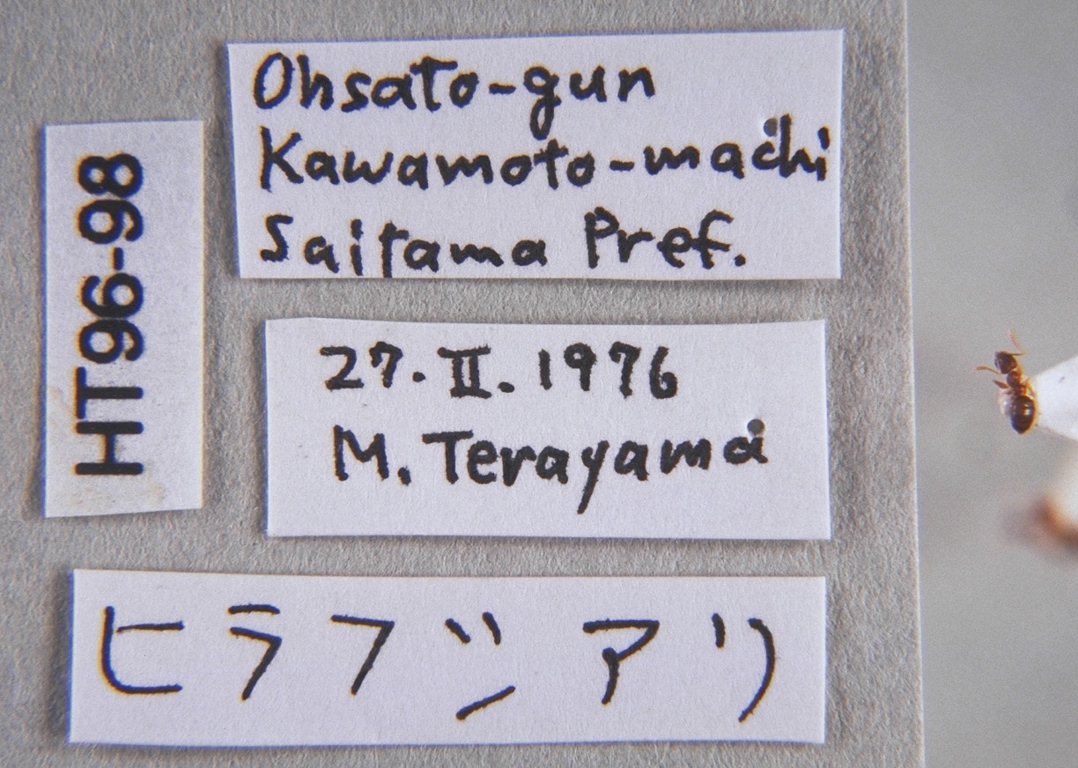 HT96-98
Ohsato-gun
Kawamoto-machi
Saitama Pref.
27. II. 1976
M. Terayama
ヒラフシアリ